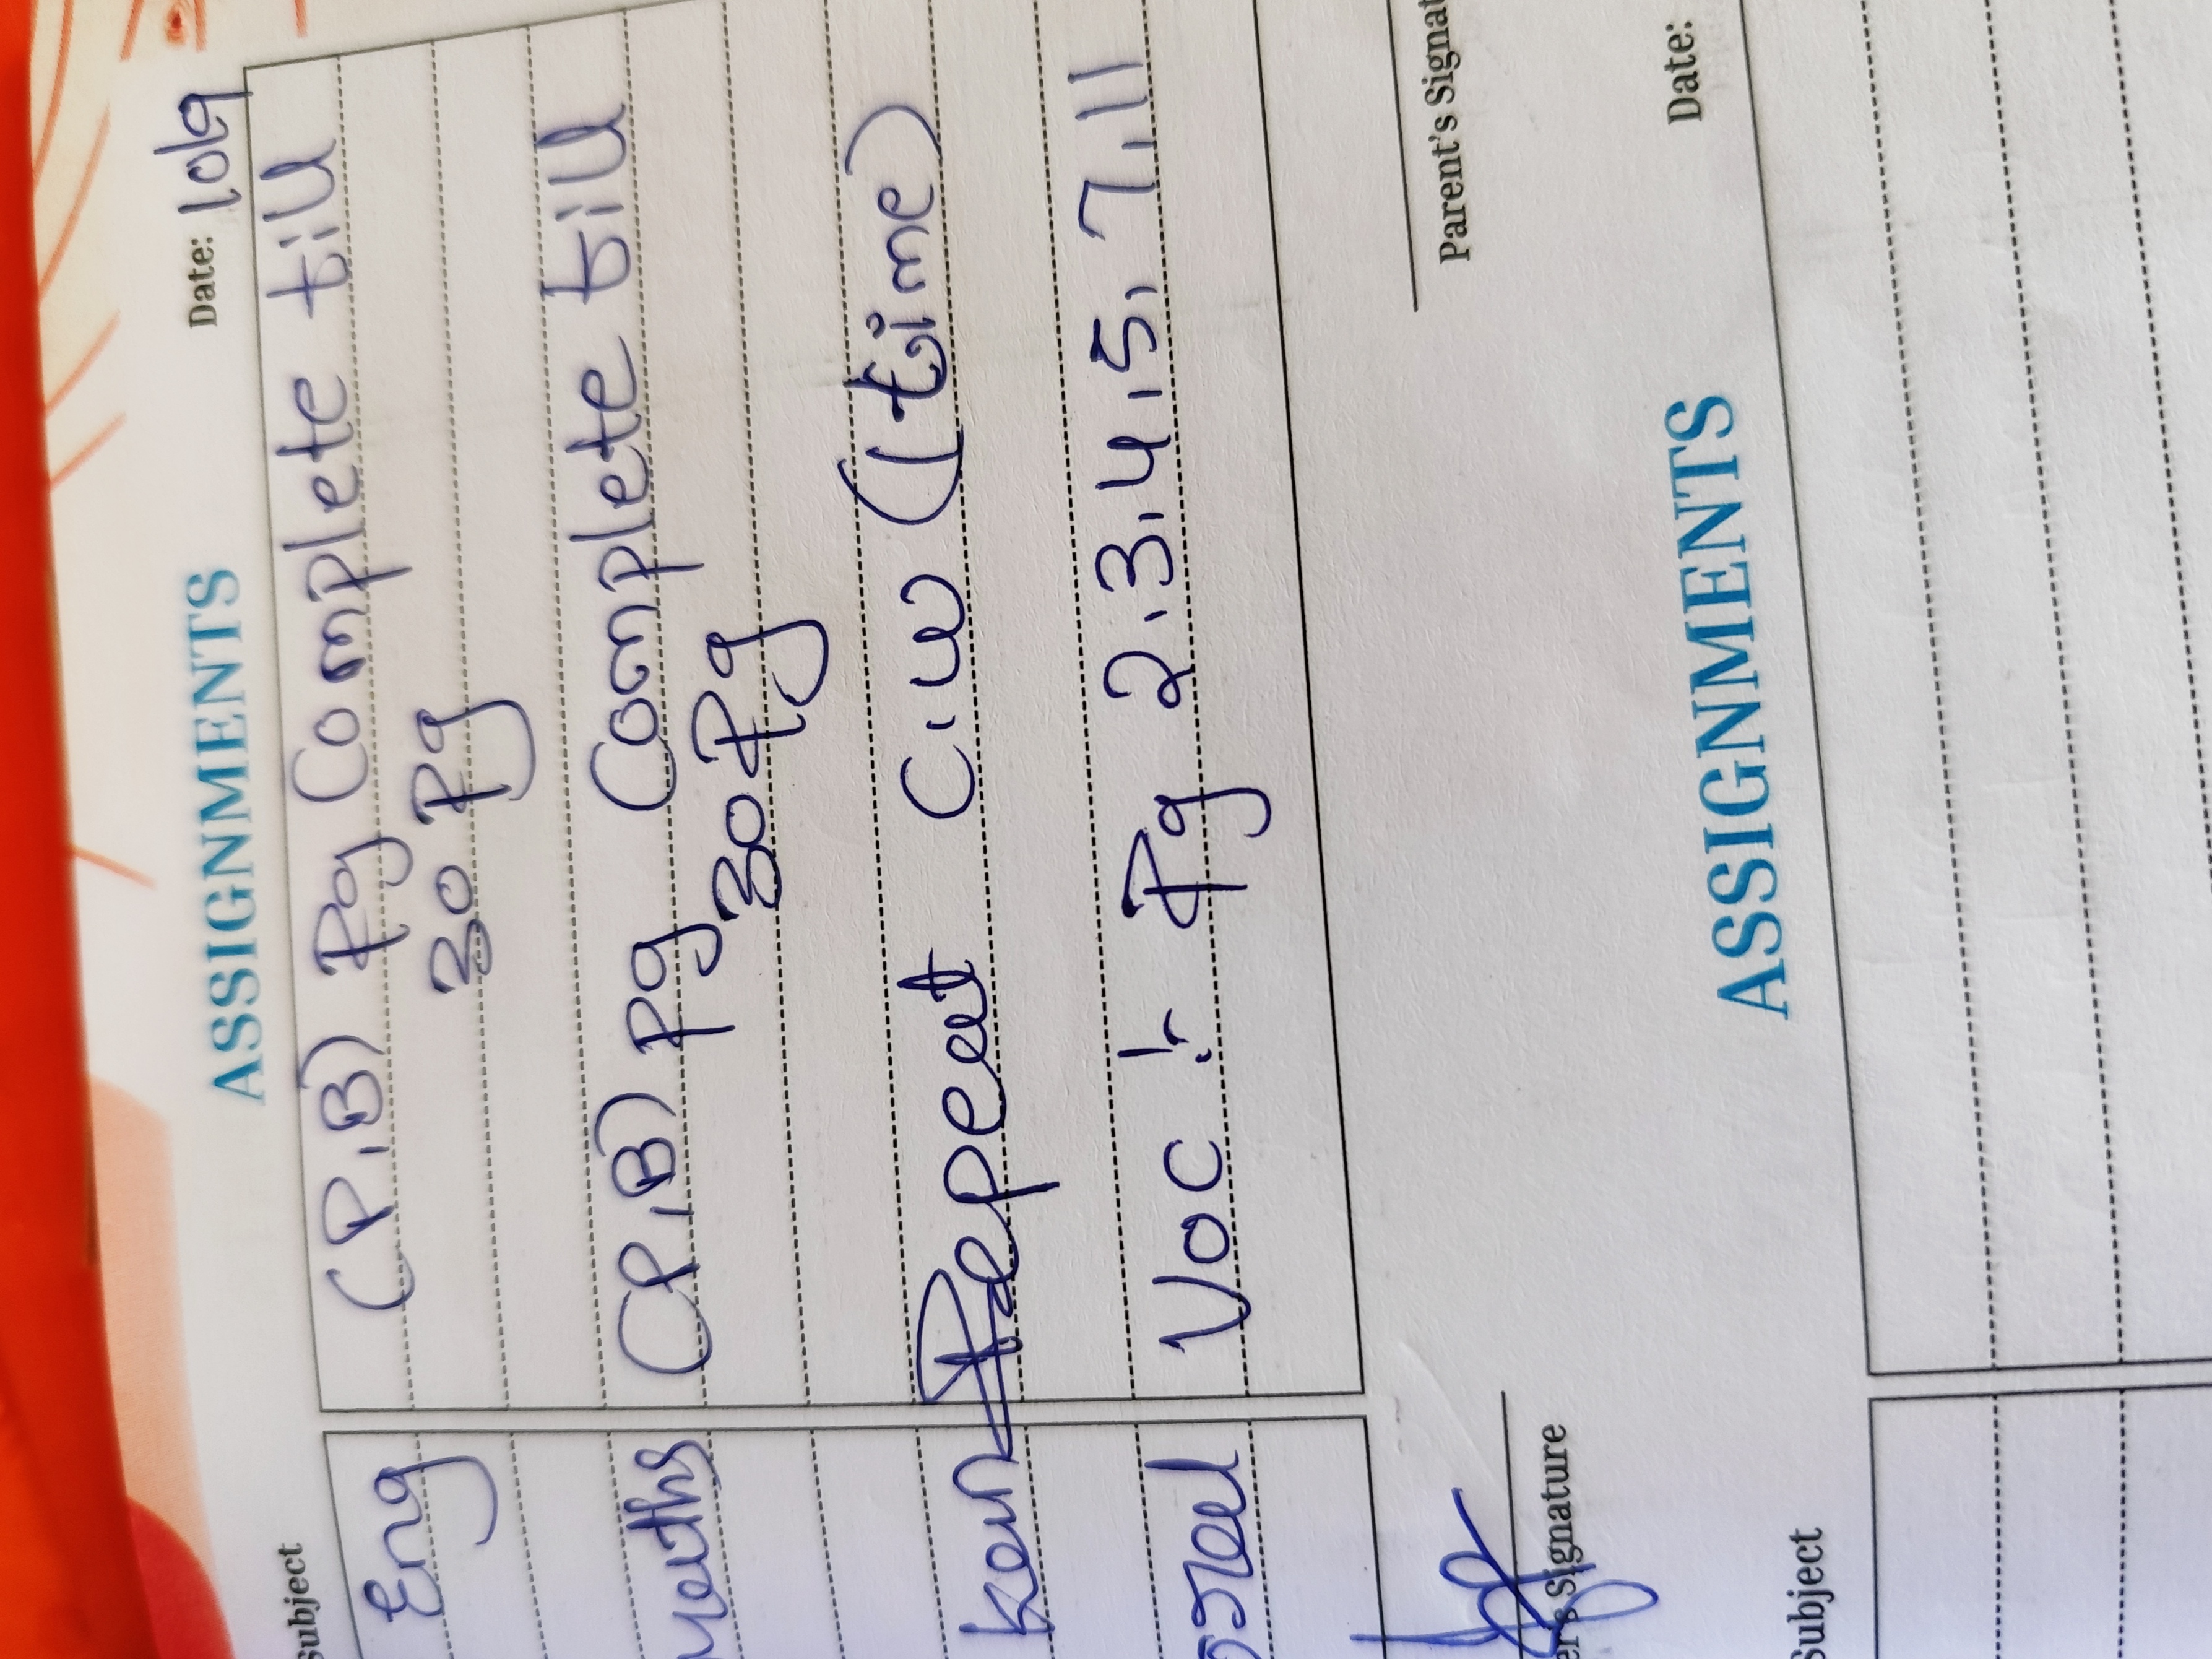 ASSIGNMENTS Date: 10/9
Subject
Eng (P.B) Pg Complete till
30 Pg
Maths (P.B) Pg Complete till
30 Pg
Kan Repeat C.W (time)
Voc :- Pg 2.3.4.5.7.11
Signature Parent's Signat
ASSIGNMENTS Date:
Subject